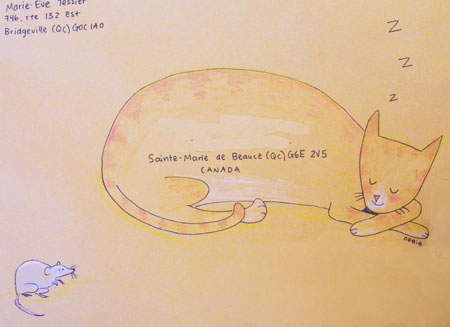 Marie-Eve Tessier
746, rte 132 Est
Bridgeville (Qc) G0C 1A0
Z
Z
Z
Sainte-Marie de Beauce (Qc) G6E 2V5
CANADA